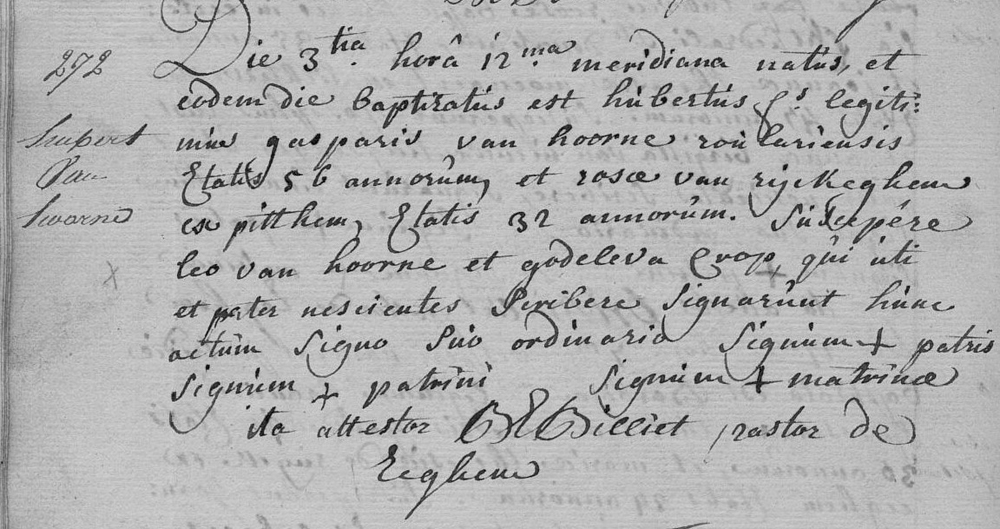 272
Hupert
Van
hoorne
Die 3.tia horâ 12.ma meridiana natus, et
eodem die baptizatus est hubertus f.s legiti:
mus gasparis van hoorne roulariensis
Etatis 56 annorum, et rosæ van ryckeghem
ex pitthem, Etatis 32 annorum. Suscepére
leo van hoorne et godeleva Crop, qui uti
et pater nescientes scribere signarunt hunc
actum signo suo ordinario signum + patris
signum + patrini signum + matrinæ
ita attestor Billiet pastor de
Eeghem